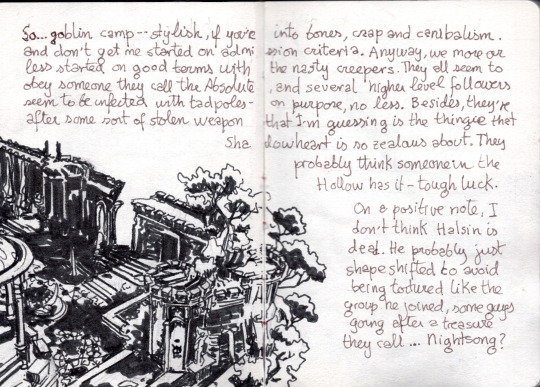 So... goblin camp -- stylish, if you're into bones, crap and canibalism.
and don't get me started on admission criteria. Anyway, we more or
less started on good terms with the nasty creepers. They all seem to
obey someone they call the Absolute, and several higher level followers
seem to be infected with tadpoles - on purpose, no less. Besides, they're
after some sort of stolen weapon that I'm guessing is the thingee that
Shadowheart is so zealous about. They
probably think someone in the
Hollow has it - tough luck.
On a positive note, I
don't think Halsin is
dead. He probably just
shapeshifted to avoid
being tortured like the
group he joined, some guys
going after a treasure
they call ... Nightsong?